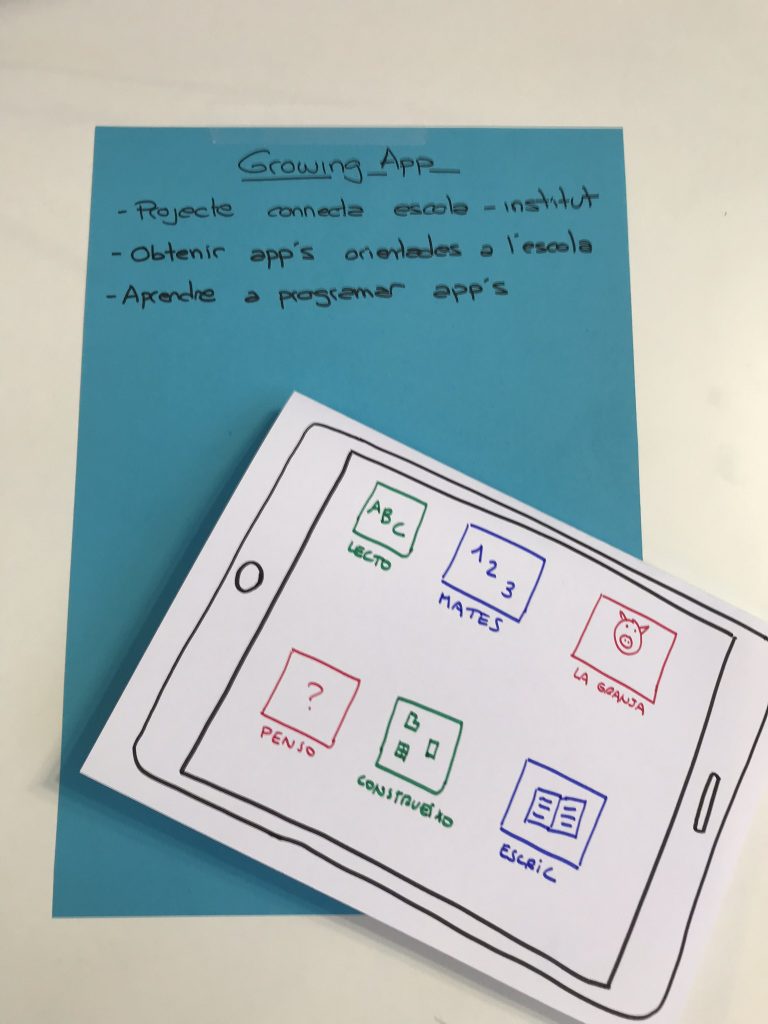 Growing_App_
- Projecte connecta escola - institut
- Obtenir app's orientades a l'escola
- Aprendre a programar app's
ABC
LECTO
1 2 3
MATES
LA GRANJA
?
PENSO
CONSTRUEIXO
ESCRIC